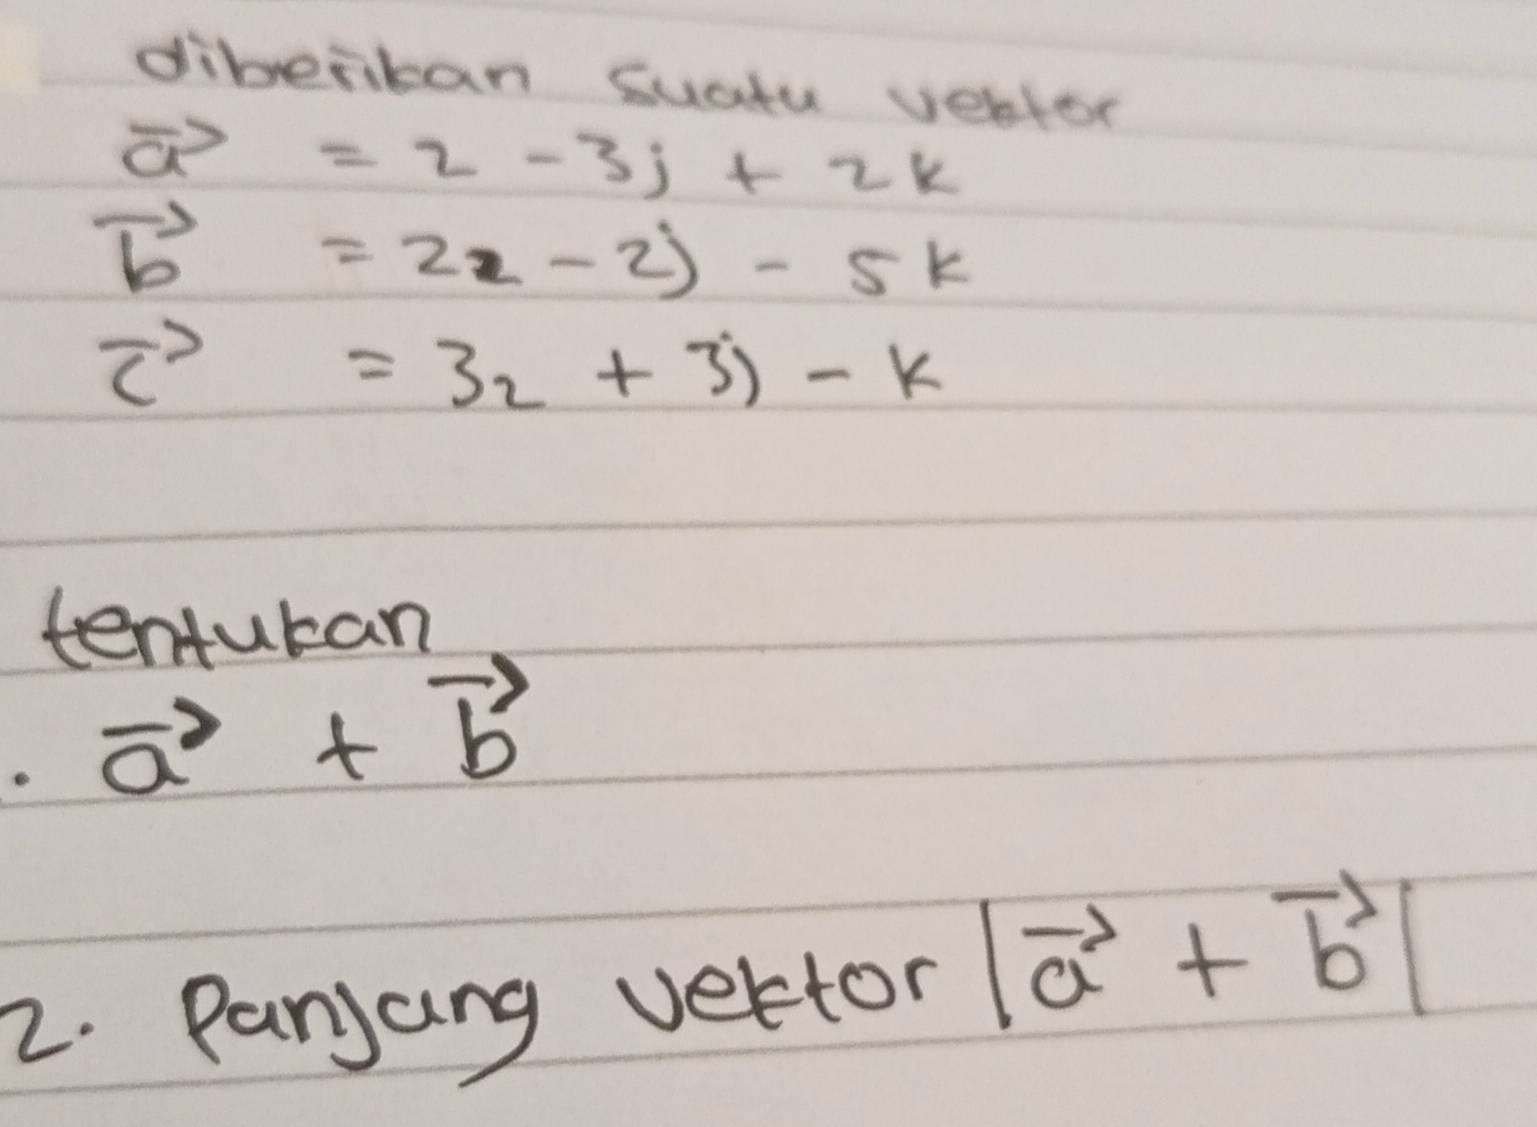 diberikan suatu vektor
a⃗ = 2 - 3j + 2k
b⃗ = 22 - 2j - 5k
c⃗ = 32 + 3j - k
tentukan
. a⃗ + b⃗
2. Panjang vektor |a⃗ + b⃗|